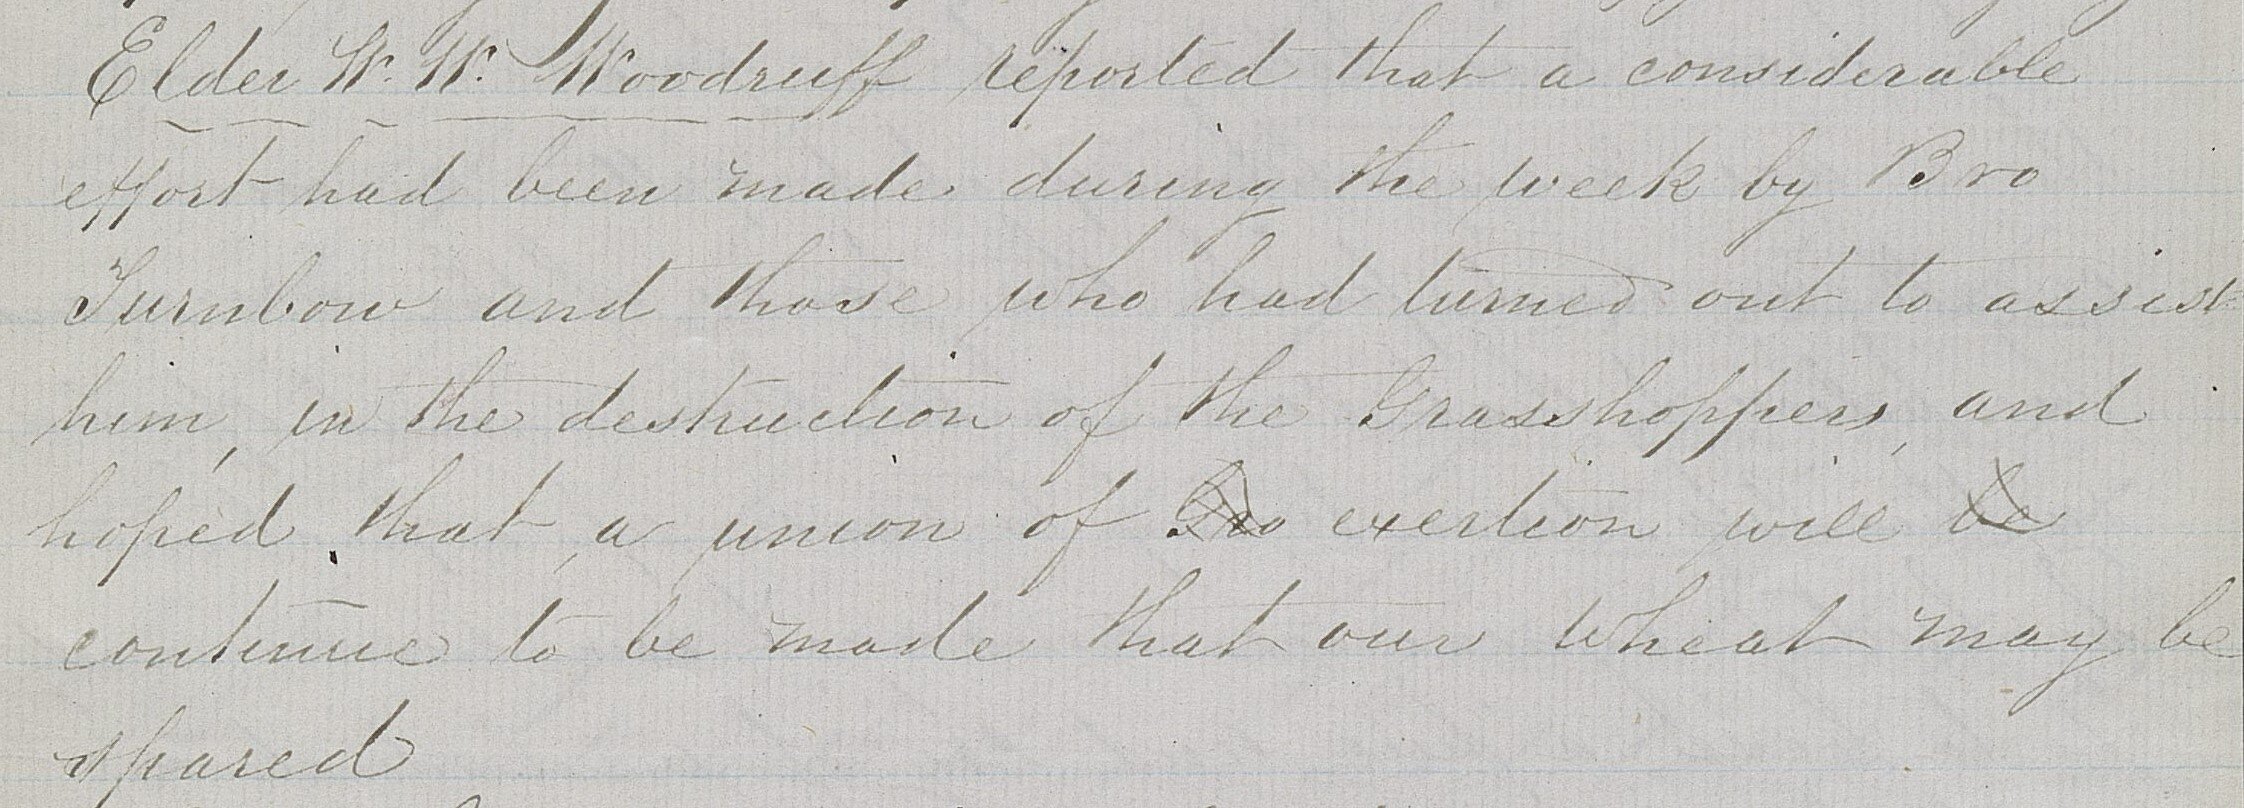 Elder W. W. Woodruff reported that a considerable
effort had been made during the week by Bro
Turnbow and those who had turned out to assist
him, in the destruction of the Grasshoppers, and
hoped that a union of exertion will be
continue to be made that our Wheat may be
spared